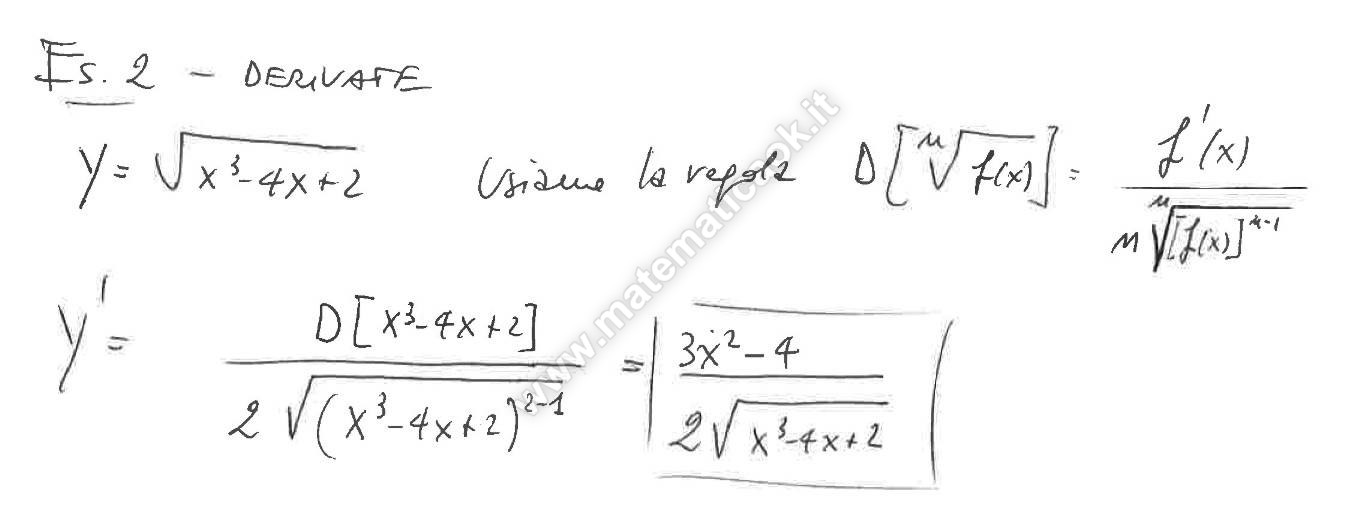 Es. 2 - DERIVATE
y = √(x³-4x+2) Usiamo la regola D[ⁿ√f(x)] = f'(x) / n ⁿ√[f(x)]ⁿ⁻¹
y' = D[x³-4x+2] / 2√(x³-4x+2)²⁻¹ = 3x²-4 / 2√(x³-4x+2)
www.matematicaok.it